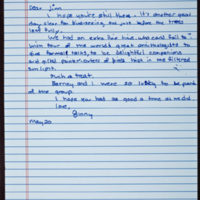 Dear Jim
I hope you're still there. It's another great
day, clear for bluebirding, and just before the trees
leaf fully.
We had an extra fine time, who can't fail to
with four of the world's great ornithologists to
give formal talks, to be delightful companions
and great pointer-outers of birds high in the filtered
sunlight.
Such a treat.
Barney and I were so lucky to be part
of the group.
I hope you had as good a time as we did.
Love,
Ginny
May 20